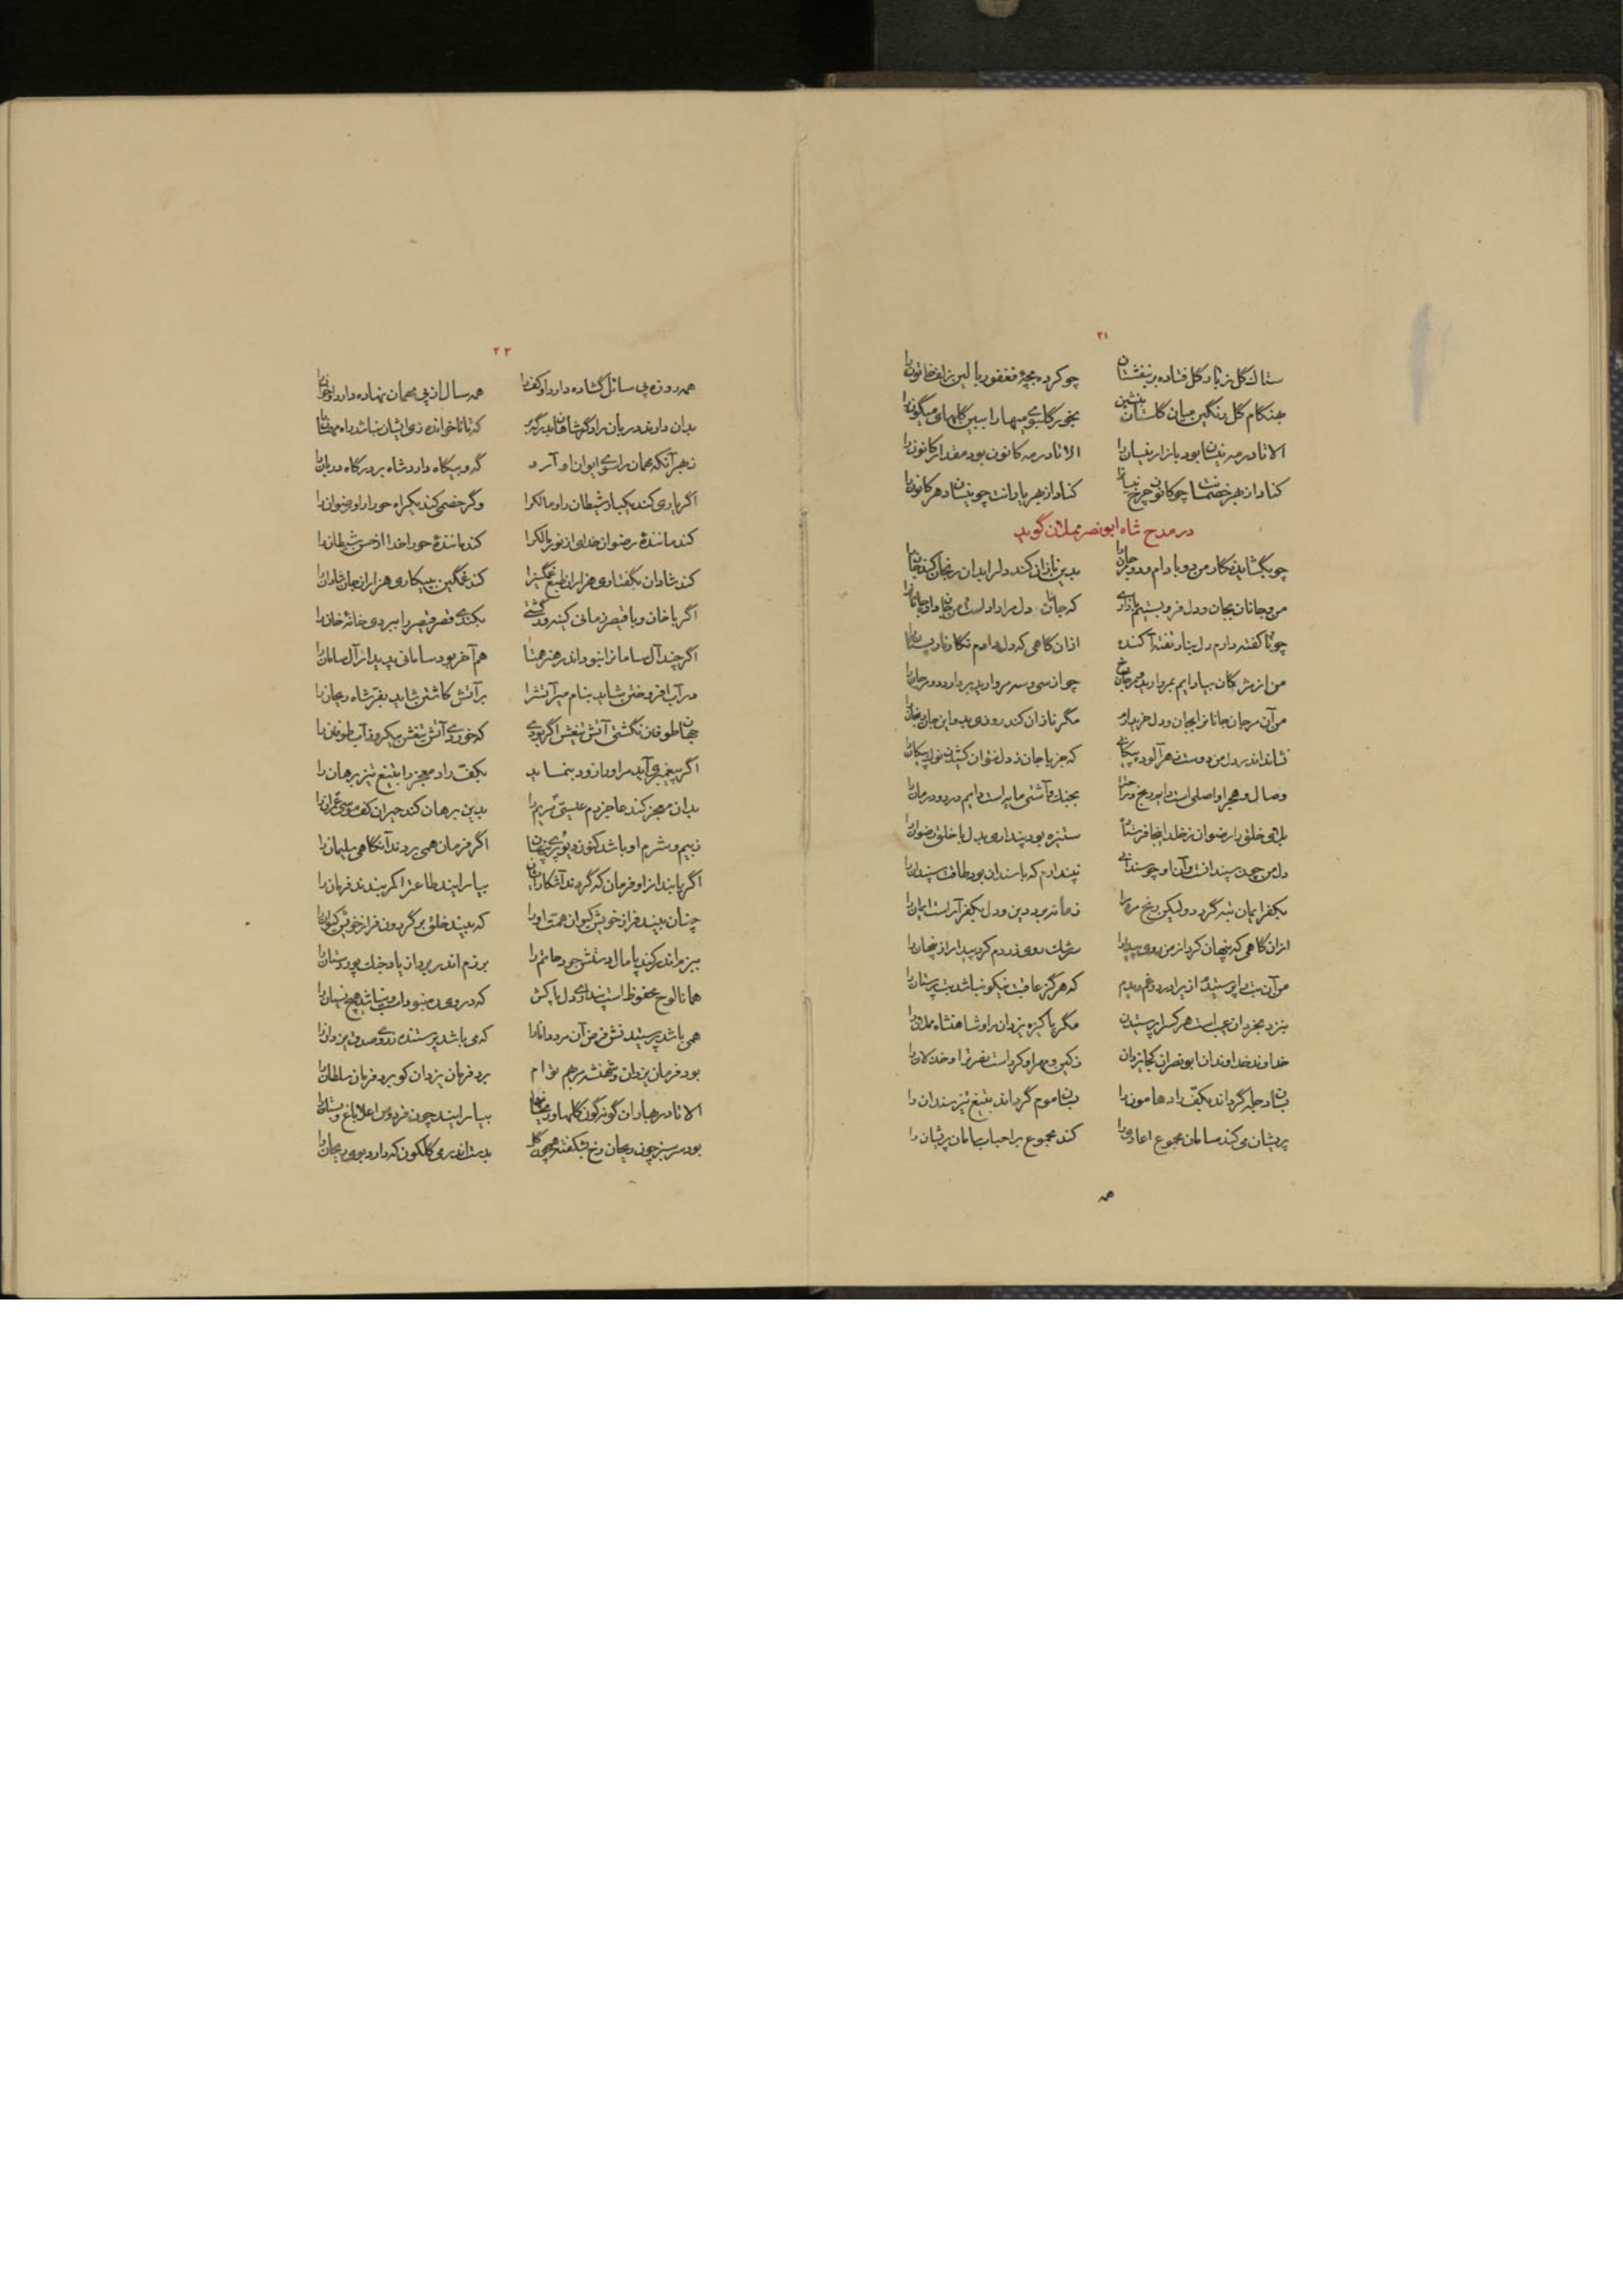 ۲۱
ستاک گل ز باد گل فتاده بر بنفشستان چو کرده بچهٔ فغفور بالین زلف خاتون را
بهنگام گل رنگین میان گلستان بنشین بخور گلبوی میها را ببین گلهای میگون را
الا تا در مه نیسان بود بازار نیسان را الا تا در مه کانون بود مقدار کانون را
کناد از بهر خصمانت چو کانون چرخ نیسان را کناد از بهر یارانت چو نیسان دهر کانون را
در مدح شاه ابونصر مملان گوید
چو بگشاید نگار من دو بادام و دو مرجان را بدین نازان کند دل را بدان رنجان کند جان را
من و جانان بجان و دل فرو بستیم بازاری که جانان دل مرا داد است من جان داده جانان را
چو نا کفته دارم دل بنار تفته آکنده از آن گاهی که دل دادم نگار نار پستان را
من از مژگان ببارایم بمروارید مرجان رخ چو از سی و سه مروارید بردارد دو مرجان را
من آن مرجان جانان را بجان و دل خریدارم مگر نازان کند روزی بدو این جان رنجان را
نشاند اندر دل من دوست زهر آلوده پیکانی که جز با جان ز دل نتوان کشید نوک پیکان را
وصال و هجر او اصلی است دایم رنج و راحت را بجنگ و آشتی مایه است دایم درد و درمان را
بلای خلق را رضوان ز خلد اینجا فرستاد ستیزه بود پنداری بدل با خلق رضوان را
دل من چون سپندانست و آن او چو سندانی نپندارم که با سندان بود طاقت سپندان را
بکفر ایمان تبه گردد ولیکن رنج من را زمانه برد دین و دل بکفر آراست ایمان را
از آن گاهی که پنهان کرد از من روی پیدا را سرشک روی زردم کرد پیدا راز پنهان را
من آن بت را پرستیدم از ایرا درد و غم دیدم که هرگز عاقبت نیکو نباشد بت پرستان را
بنزد بخردان عیب است هر کس را پرستیدن مگر پاکیزه یزدان را و شاهنشاه مملان را
خداوند خداوندان ابونصر آن کجا یزدان ز کین و مهر او کرد است نصرت را و خذلان را
بسان دجله گرداند بکف راد هامون را بسان موم گرداند بتیغ تیز سندان را
پریشان می کند سامان مجموع اعادی را کند مجموع بر احباب سامان پریشان را
همه
۲۲
همه روزه پی سائل گشاده دارد او کف را همه سال از پی مهمان نهاده دارد او خوان را
بدان دارند دربان را دگر شاهان بدرگه بر که تا ناخوانده زی ایشان نباشد راه مهمان را
ز بهر آنکه مهمان را سوی ایوان او آرد گه و بیگاه دارد شاه بر درگاه دربان را
اگر یاری کند یکبار شیطان را و مالک را وگر خصمی کند یکراه حورا را و رضوان را
کند مانندهٔ رضوان خدای از نور مالک را کند مانندهٔ حورا خدا از حسن شیطان را
کند شادان بگفتاری هزاران طبع غمگین را کند غمگین به پیکاری هزاران جان شادان را
اگر با خان و با قیصر زمانی کینه ور گشتی بکندی قصر قیصر را ببردی خانهٔ خان را
اگر چند آل سامان را نبود اندر هنر همتا هم آخر بود سامانی پدیدار آل سامان را
در آب افروختن شاید بنام میر آتش را بر آتش کاشتن شاید بفر شاه ریحان را
جهان طوفان نگشتی آتش تیغش اگر بودی که خوردی آتش تیغش بیکروز آب طوفان را
اگر پیغمبری آید مر او را زود بنماید بکف راد معجز را بتیغ تیز برهان را
بدان معجز کند عاجز دم عیسی مریم را بدین برهان کند حیران کف موسی عمران را
ز بیم و شرم او باشد کنون دیو و پری پنهان اگر فرمان همی بردند آنگاهی سلیمان را
اگر یابند از او فرمان که گردند آشکارا زان بیارایند طاعت را کمر بندند فرمان را
چنان بیند فراز خویش کیوان همت او را که بیند خلق بر گردون فراز خویش کیوان را
ببزم اندر کند پامال دستش جود حاتم را برزم اندر برد از یاد جنگ پور دستان را
همانا لوح محفوظ است پنداری دل پاکش که در وی ره نبود است و نباشد هیچ نسیان را
همی باشد پرستیدنش فرض آن مرد دانا را که می باشد پرستنده ز روی صدق یزدان را
بود فرمان یزدان و شهنشه بر هم توام برد فرمان یزدان کو برد فرمان سلطان را
الا تا در بهاران گونه گون گلها و ریحانها بیارایند چون فردوس اعلا باغ و بستان را
بود سر سبز چون ریحان رخ بشکفته همچون گل بدست اندر می گلگون که دارد بوی ریحان را